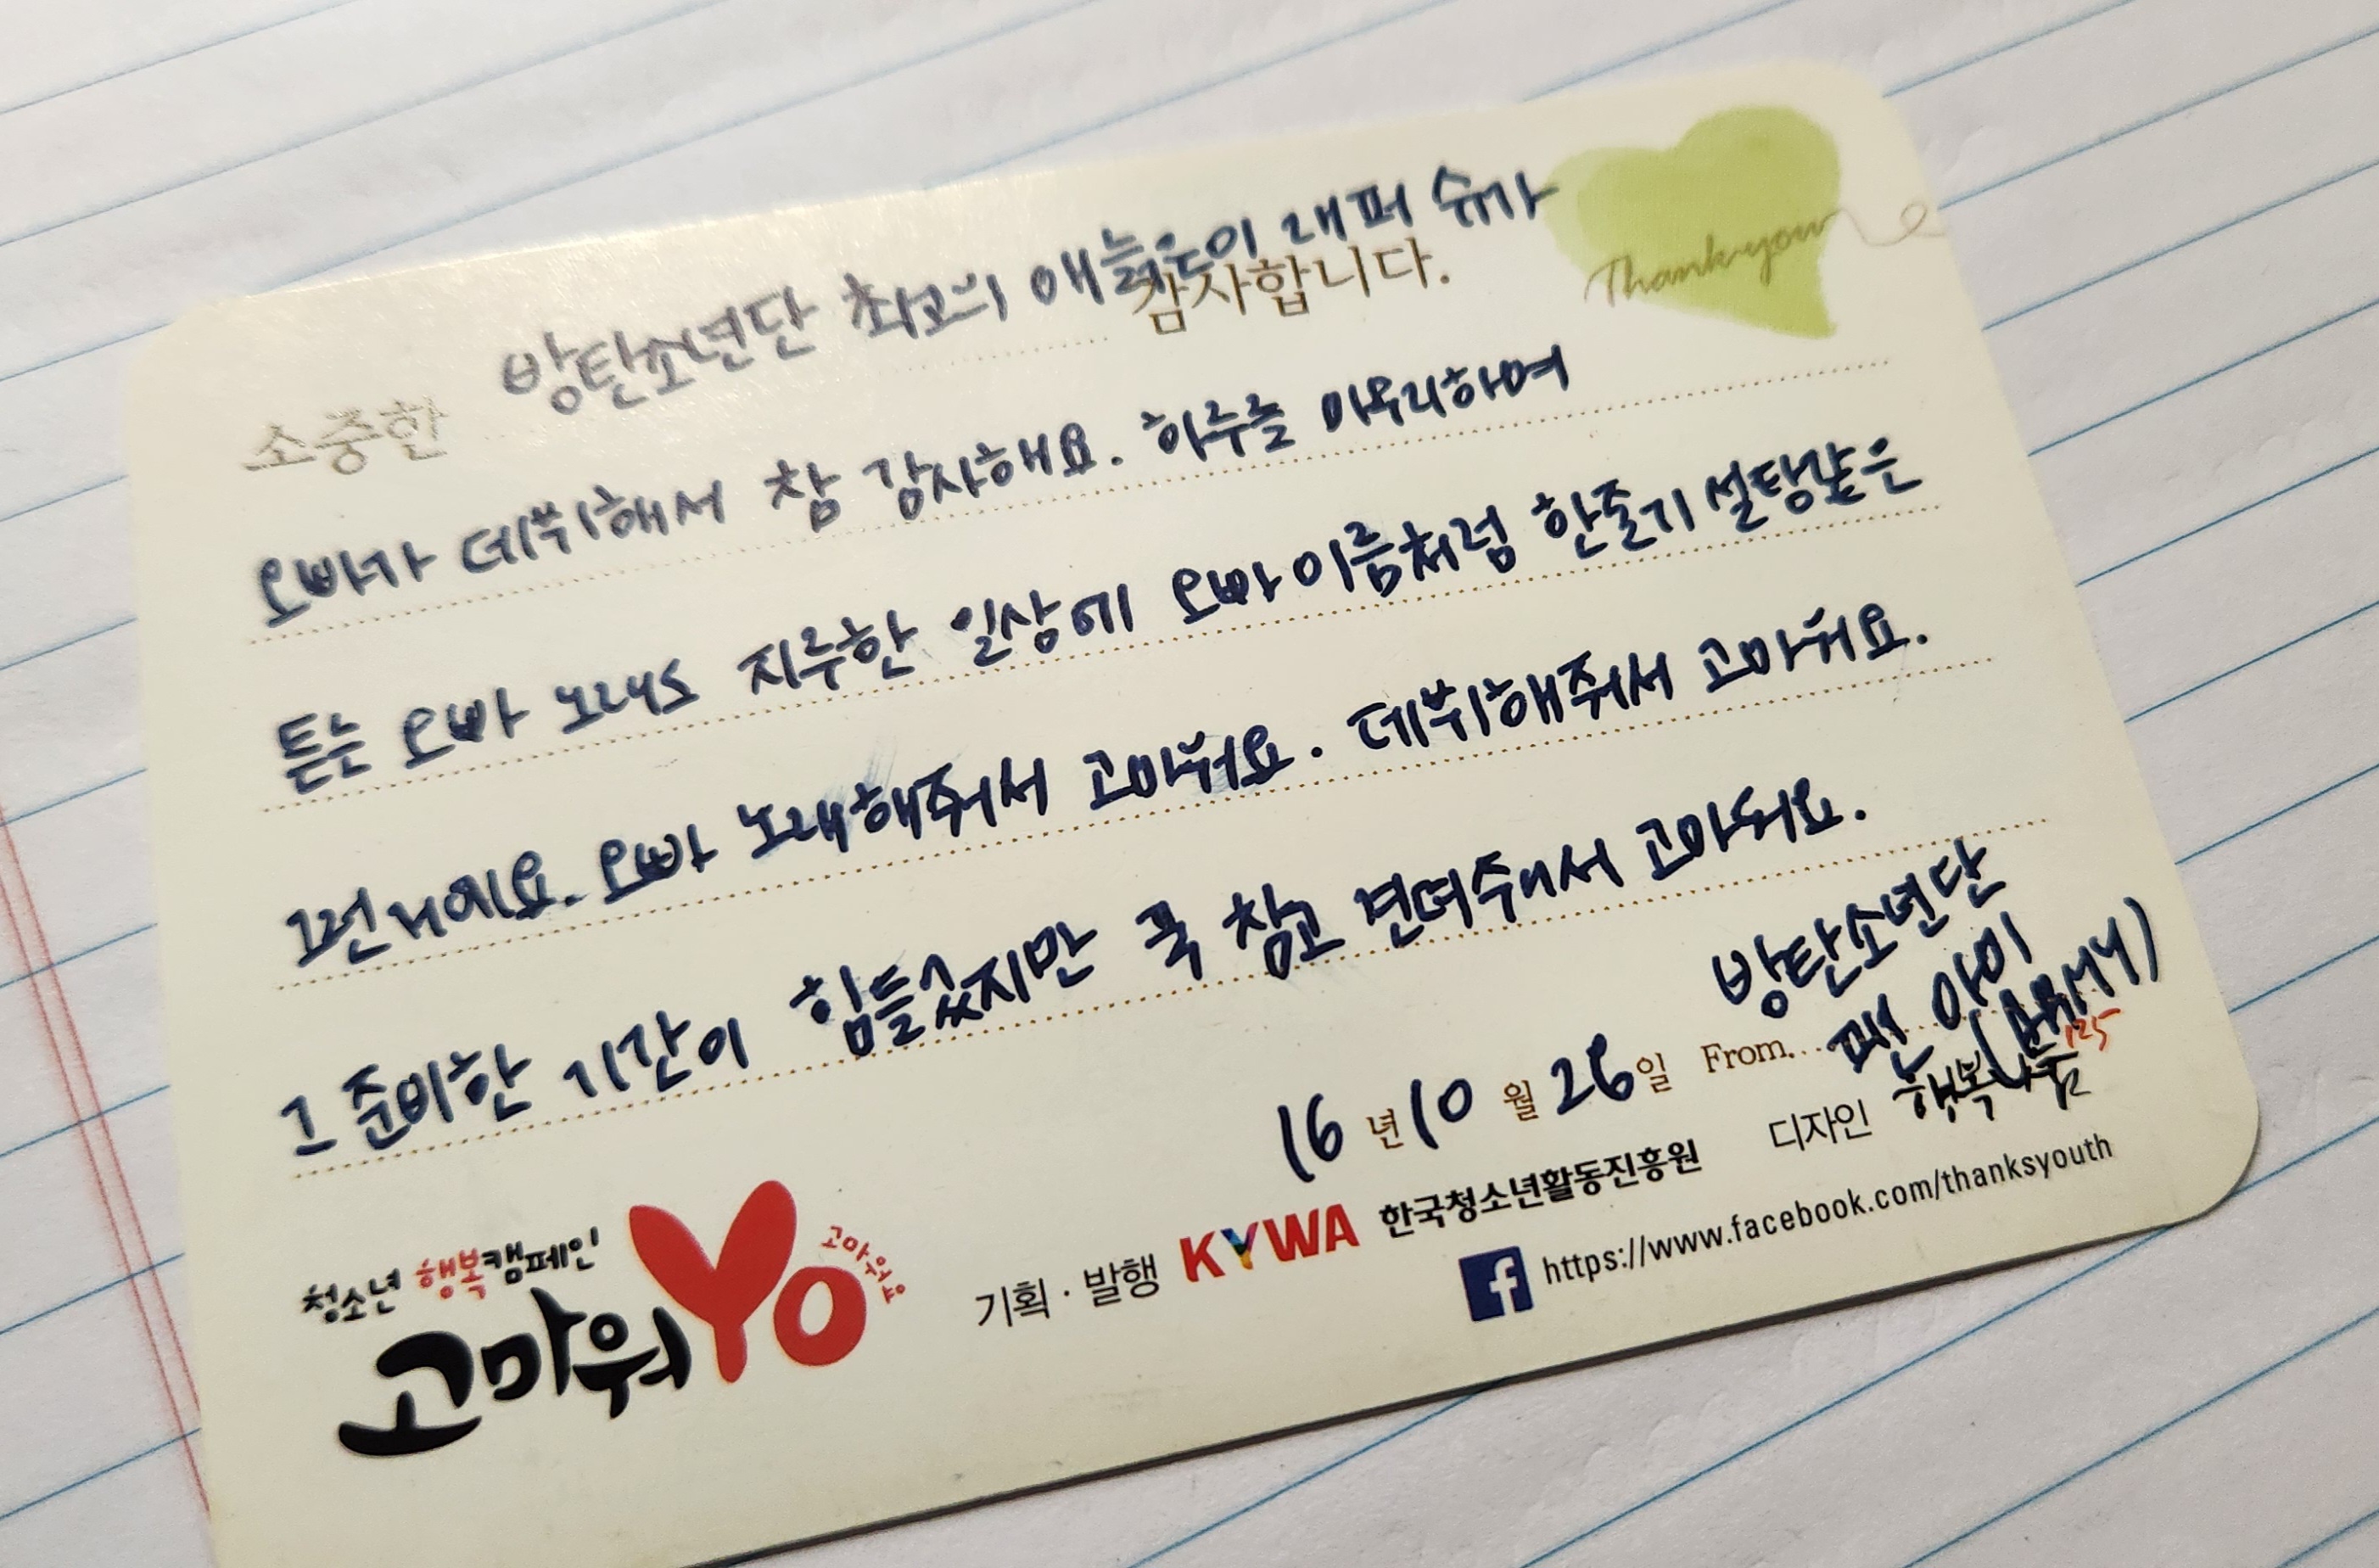 소중한 방탄소년단 최고의 애늙은이 래퍼 슈가 감사합니다.
Thank you
오빠가 데뷔해서 참 감사해요. 하루를 마무리하며
듣는 오빠 노래도 지루한 일상에 오빠 이름처럼 한줄기 설탕같은
그런 거예요. 오빠 노래해줘서 고마워요. 데뷔해줘서 고마워요.
그 준비한 기간이 힘들었지만 꾹 참고 견뎌주셔서 고마워요.
방탄소년단
팬 아미
(ARMY)
16 년 10 월 26 일 From.
청소년 행복캠페인
고마워Yo 고마워요
기획·발행 KYWA 한국청소년활동진흥원 디자인 행복나눔 125
https://www.facebook.com/thanksyouth